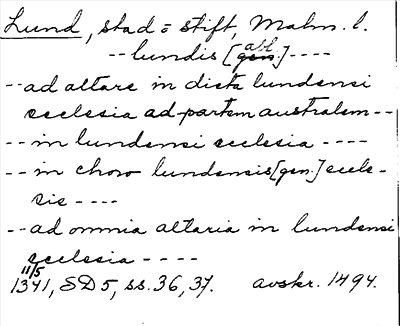 Lund, stad o stift, Malm. l.
--lundis [abl.]----
--ad altare in dicta lundensi
ecclesia ad partem australem--
--in lundensi ecclesia ----
--in choro lundensis [gen.] eccle-
sie ----
--ad omnia altaria in lundensi
ecclesia ----
11/5
1341, SD 5, ss. 36, 37. avskr. 1494.